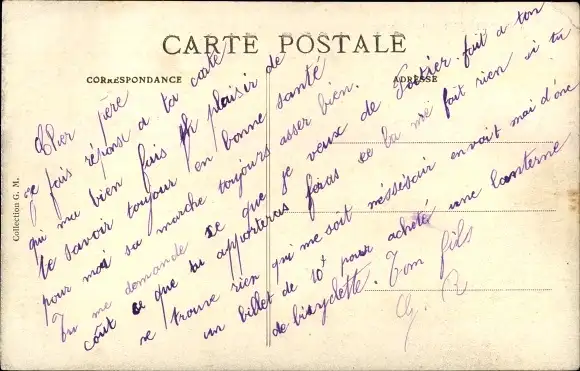 CARTE POSTALE
CORRESPONDANCE
ADRESSE
Collection G. M.
Cher père
je fais réponse a ta carte
qui ma bien fais plaisir de
te savoir toujour en bonne santé
pour moi sa marche toujours asser bien.
Tu me demande se que je veux de fait a ton
coût ce que tu apporteras feras ce la me fait rien si tu
ne trouve rien qui me soit envoit moi d'onc
un billet de 10f pour acheté une lanterne
de bicyclette. Ton fils
G. R